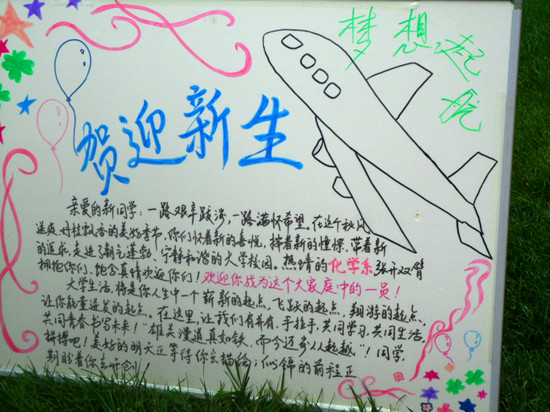 梦想,起
航
贺迎新生
亲爱的新同学：一路艰辛跋涉，一路满怀希望。在这个秋风
送爽、丹桂飘香的美好季节，你们怀着新的喜悦，择着新的憧憬，带着新
的追求，走进了朝气蓬勃、宁静和谐的大学校园。热情的化学系张开双臂
拥抱你们，饱含真情欢迎你们！欢迎你成为这个大家庭中的一员！
大学生活，将是你人生中一个新新的起点，飞跃的起点，翔游的起点，
让你能量迸发的起点。在这里，让我们肩并肩，手拉手，共同学习，共同生活，
共同青春书写未来！"雄关漫道真如铁，而今迈步从头越"！同学，
拼搏吧！美好的明天正等待你去描绘；似锦的前程正
期盼着你去开创